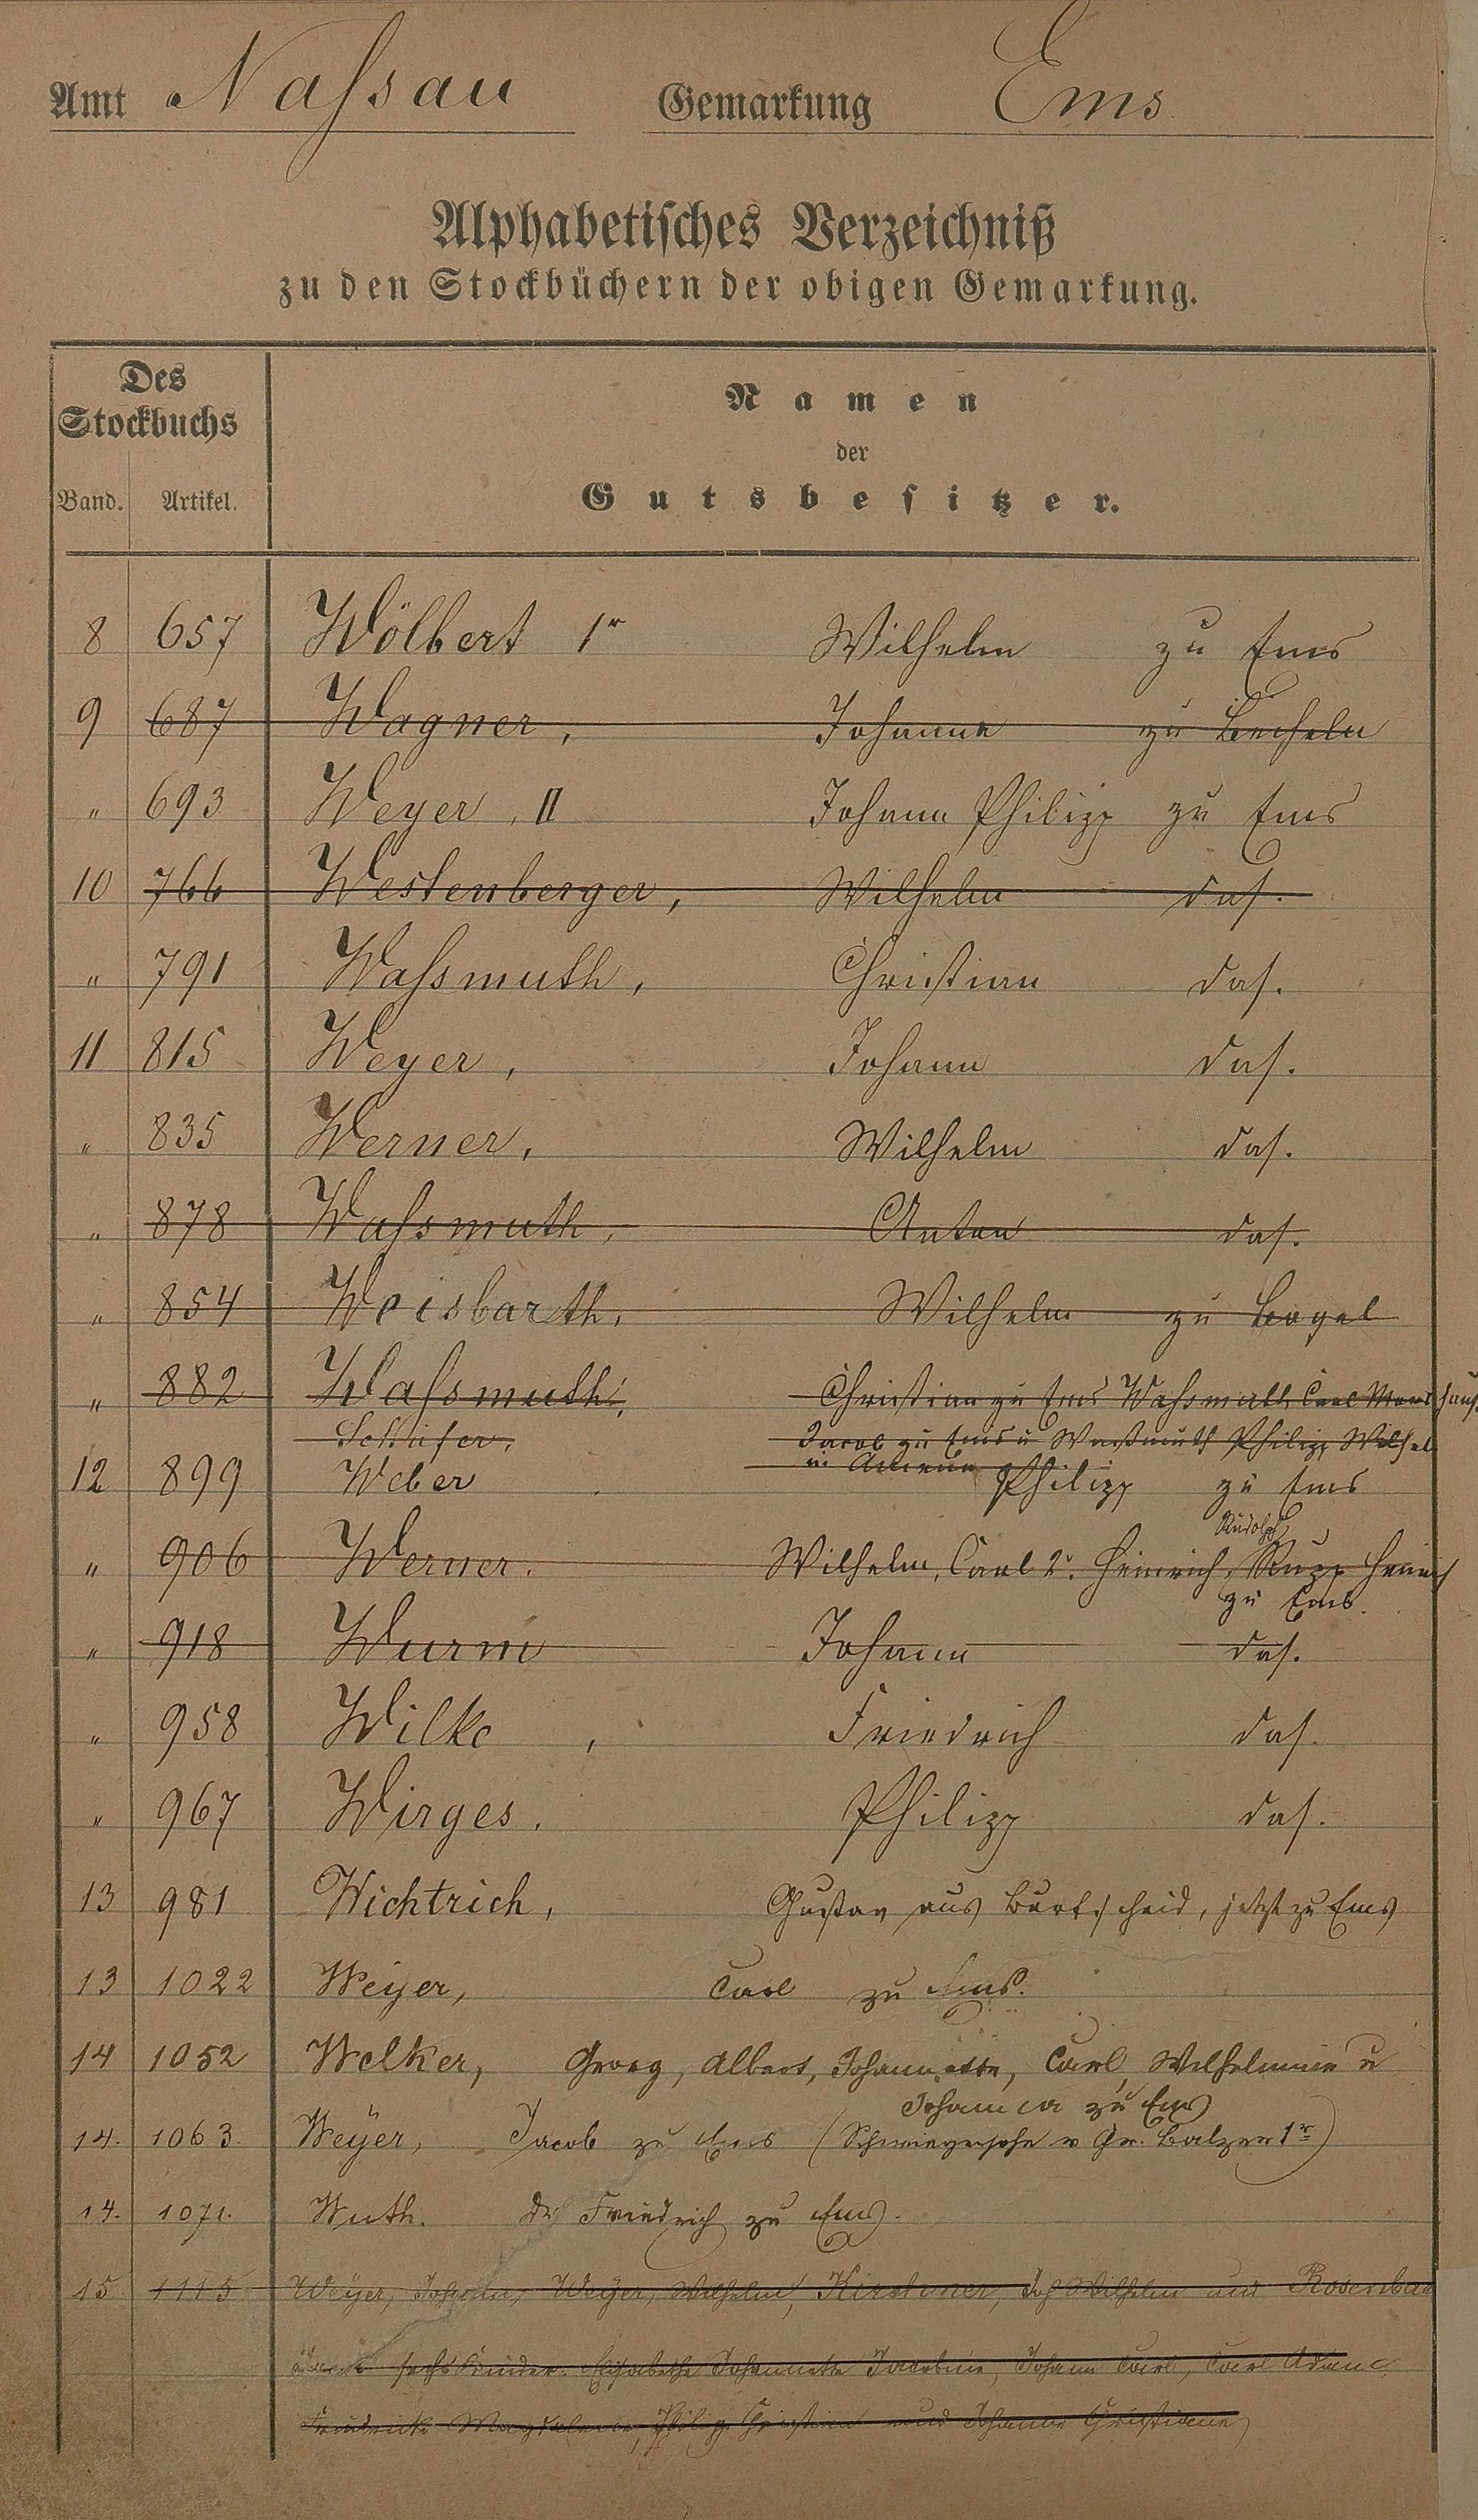 Amt Naſsau Gemarkung Ems
Alphabetiſches Verzeichniß
zu den Stockbüchern der obigen Gemarkung.
Des
Stockbuchs
Band. Artikel.
Namen
der
Gutsbeſitzer.
8 657 Wölbert 1r Wilhelm zu Ems
9 687 Wagner, Johann zu Becheln
" 693 Weyer, II Johann Philipp zu Ems
10 766 Westenberger, Wilhelm daſ.
" 791 Waſsmuth, Christian daſ.
11 815 Weyer, Johann daſ.
" 835 Werner, Wilhelm daſ.
" 878 Waſsmuth, Anton daſ.
" 854 Weisbarth, Wilhelm zu Bogel
" 882 Waſsmuth, Christian zu Ems Waſsmuth Carl
Schäfer, Jacob zu Ems u Waßmuth Philipp Wilhel
u.
12 899 Weber Philipp zu Ems
Rudolph
" 906 Werner. Wilhelm, Carl 2r. Heinrich, Rupp Heinrich
zu Ems.
" 918 Wurm Johann daſ.
" 958 Wilke, Friedrich daſ.
" 967 Wirges. Philipp daſ.
13 981 Wichtrich, Gustav aus Burtscheid, jetzt zu Ems
13 1022 Weyer, Carl zu Ems.
14 1052 Welker, Georg, Albert, Johannette, Carl, Wilhelmine u
Johanna zu Ems
14. 1063. Weyer, Jacob zu Ems (Schwiegersohn v Gg. Balzer 1r)
14. 1071. Wuth. Dr Friedrich zu Ems.
15 1115 Weyer, Johann, Weyer, Wilhelm, Kirchner, Joh Wilhelm und
sechs Kinder: Elisabethe Johannette Jacobine, Johann Carl, Carl Adam
Friedricke Magdalene, Philipp Christian und Johanne Christiane